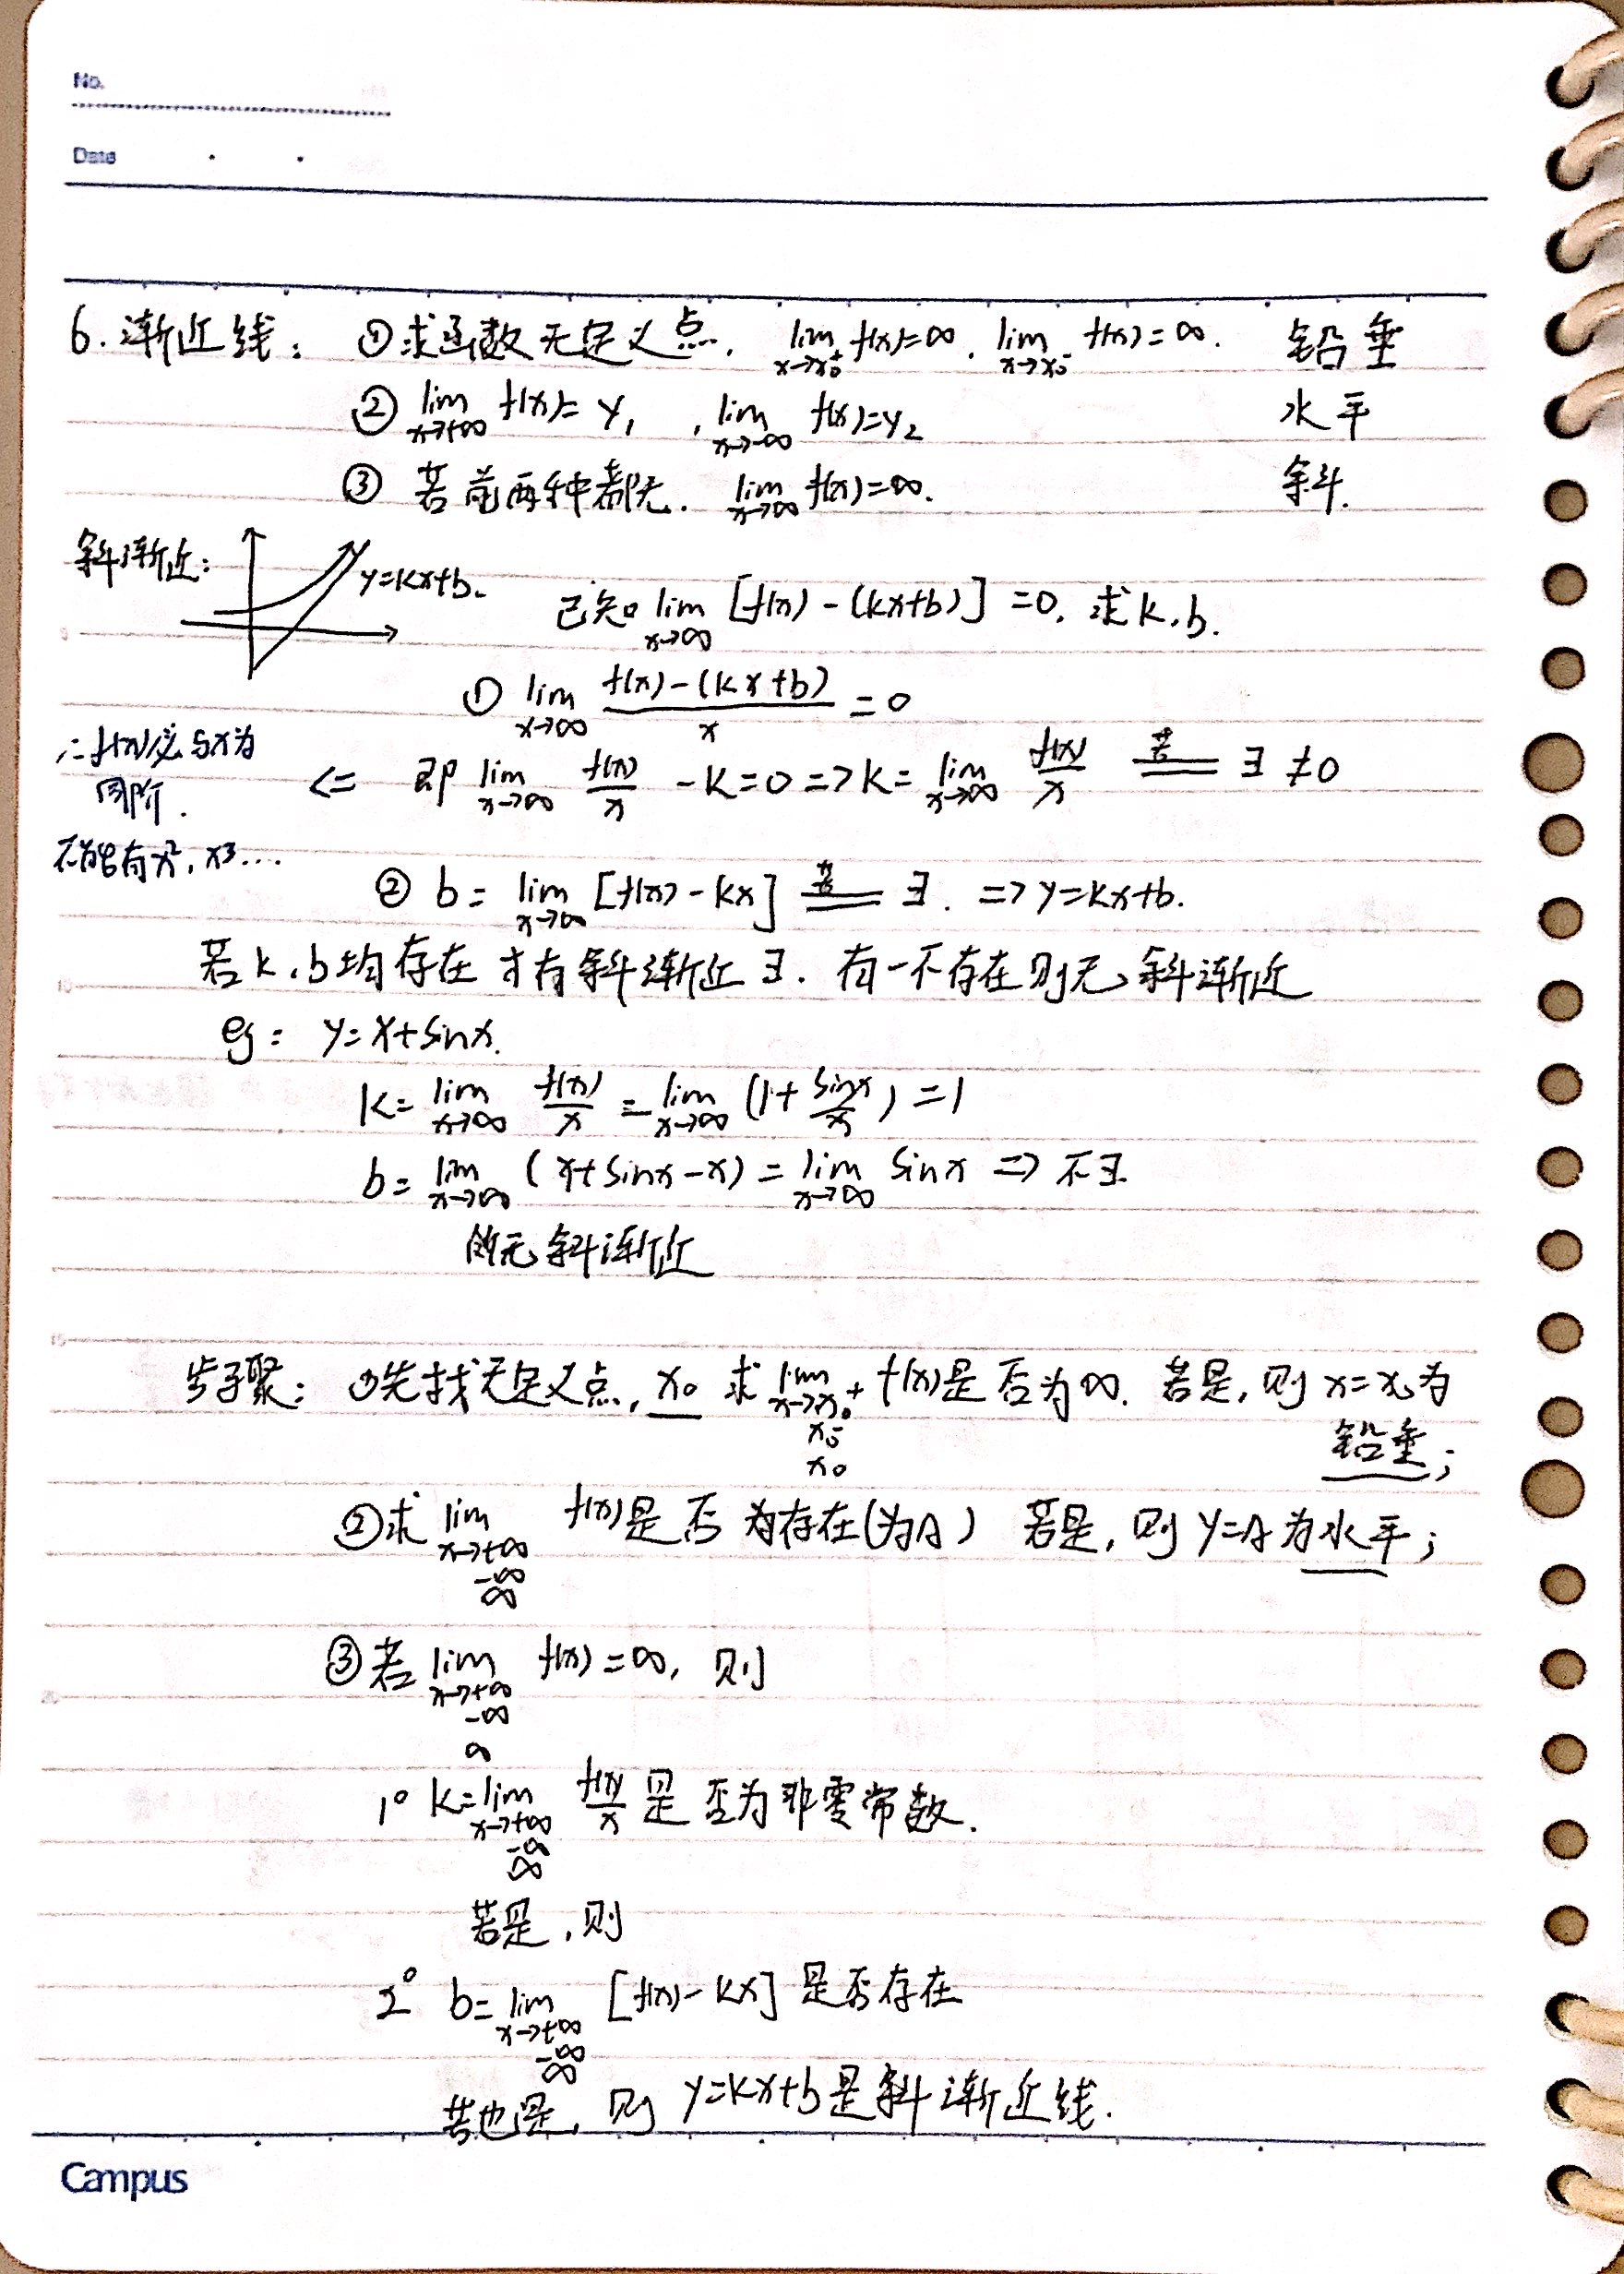 No.
Date
6. 渐近线: ①求函数无定义点, lim x→x₀⁺ f(x)=∞, lim x→x₀⁻ f(x)=∞. 铅垂
② lim x→+∞ f(x)=y₁, lim x→-∞ f(x)=y₂ 水平
③ 若前两种都无. lim x→∞ f(x)=∞. 斜.
斜渐近: y=kx+b.
已知 lim x→∞ [f(x)-(kx+b)]=0, 求k,b.
① lim x→∞ (f(x)-(kx+b))/x =0
∴f(x)必与x为
同阶.
不能有x², x³....
<= 即 lim x→∞ f(x)/x -k=0 => k= lim x→∞ f(x)/x 若== ∃ ≠0
② b= lim x→∞ [f(x)-kx] 若== ∃. => y=kx+b.
若k,b均存在才有斜渐近∃. 有一不存在则无斜渐近
eg: y=x+sinx.
k= lim x→∞ f(x)/x = lim x→∞ (1+ sinx/x) =1
b= lim x→∞ (x+sinx-x) = lim x→∞ sinx => 不∃
无斜渐近
步骤: ①先找无定义点, x₀ 求 lim x→x₀⁺ f(x)是否为∞. 若是, 则x=x₀为
x₀⁻
x₀
铅垂;
②求 lim x→+∞ f(x)是否为存在(为A) 若是, 则y=A为水平;
-∞
∞
③若 lim x→+∞ f(x)=∞, 则
-∞
∞
1° k= lim x→+∞ f(x)/x 是否为非零常数.
-∞
∞
若是, 则
2° b= lim x→+∞ [f(x)-kx] 是否存在
-∞
∞
若也是, 则y=kx+b是斜渐近线.
Campus